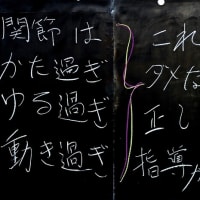 関節は
かた過ぎ
ゆる過ぎ
動き過ぎ
これ
ダメな
正し
指導